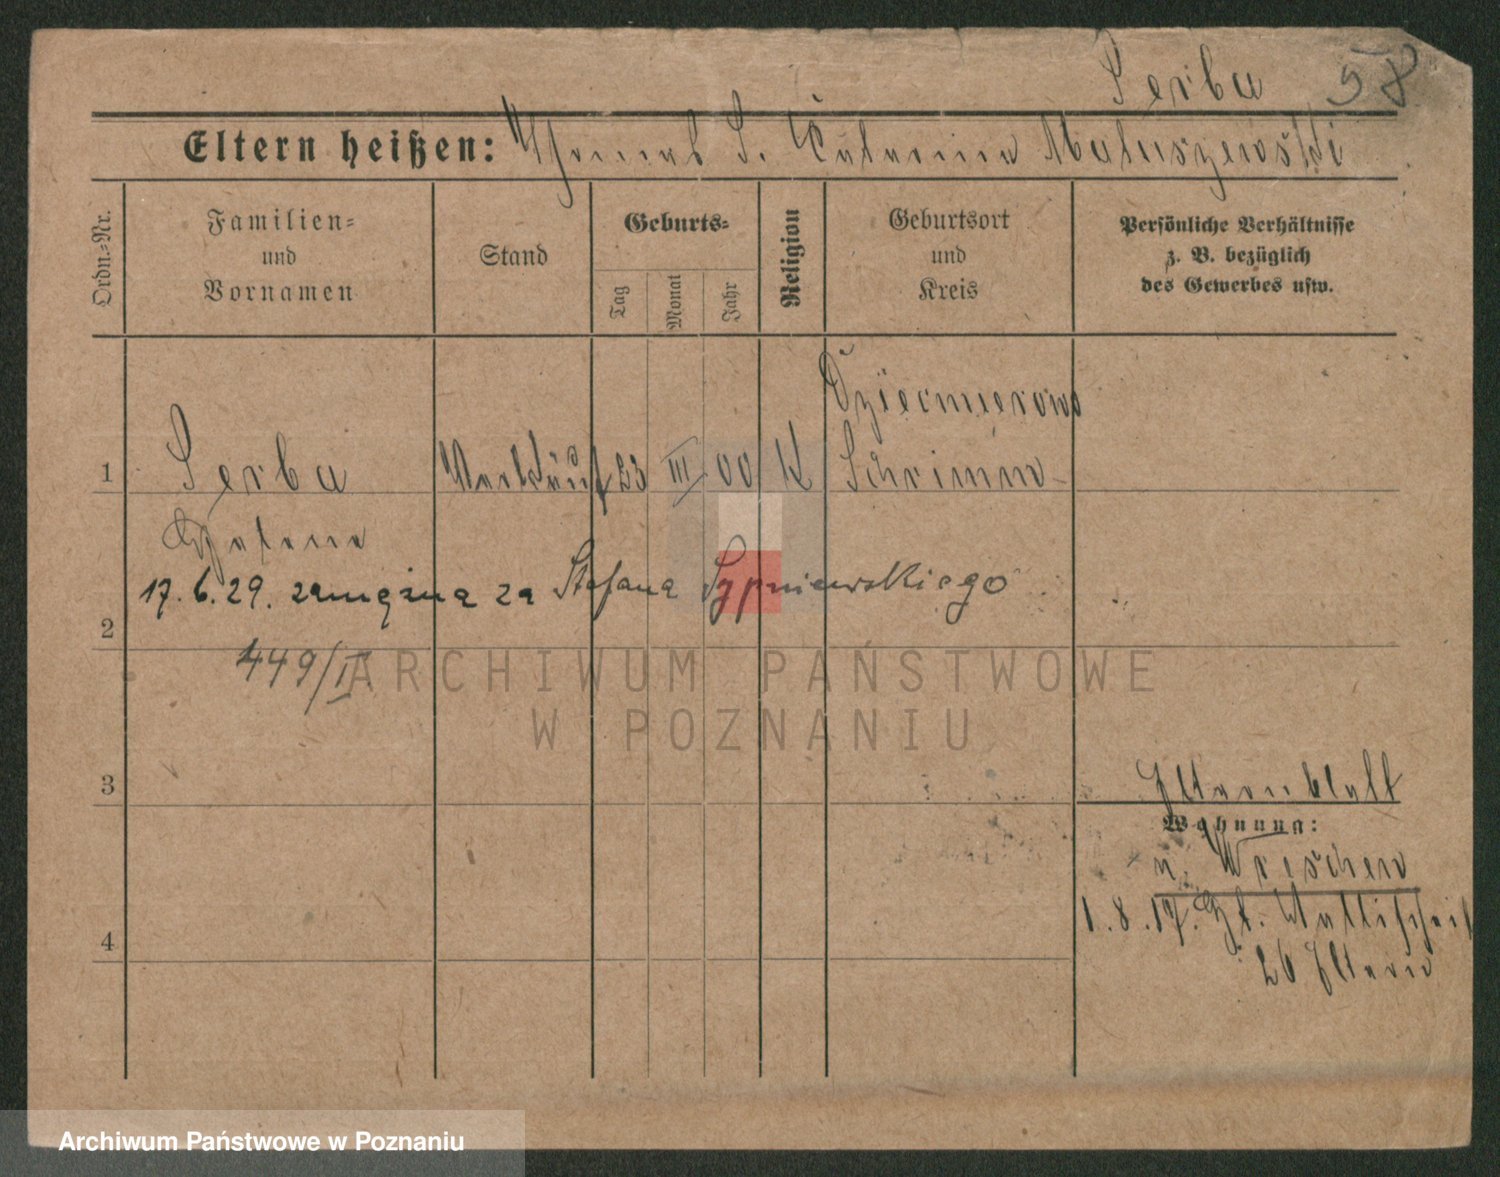 Serba 58
Eltern heißen: Thomas S. Katarina Matuszewski
Ordn.=Nr.
Familien=
und
Vornamen
Stand
Geburts=
Tag
Monat
Jahr
Religion
Geburtsort
und
Kreis
Persönliche Verhältnisse
z. B. bezüglich
des Gewerbes usw.
Dziecmierowo
1 Serba Verkäuf 23 III 00 K Schrimm
Helene
17.6.29. zamężna za Stefana Sypniewskiego
2
449/II
ARCHIWUM PAŃSTWOWE
W POZNANIU
3 Elternblatt
Wohnung:
n. Wreschen
4 1.8.17. Wallischei
26 Eltern
Archiwum Państwowe w Poznaniu